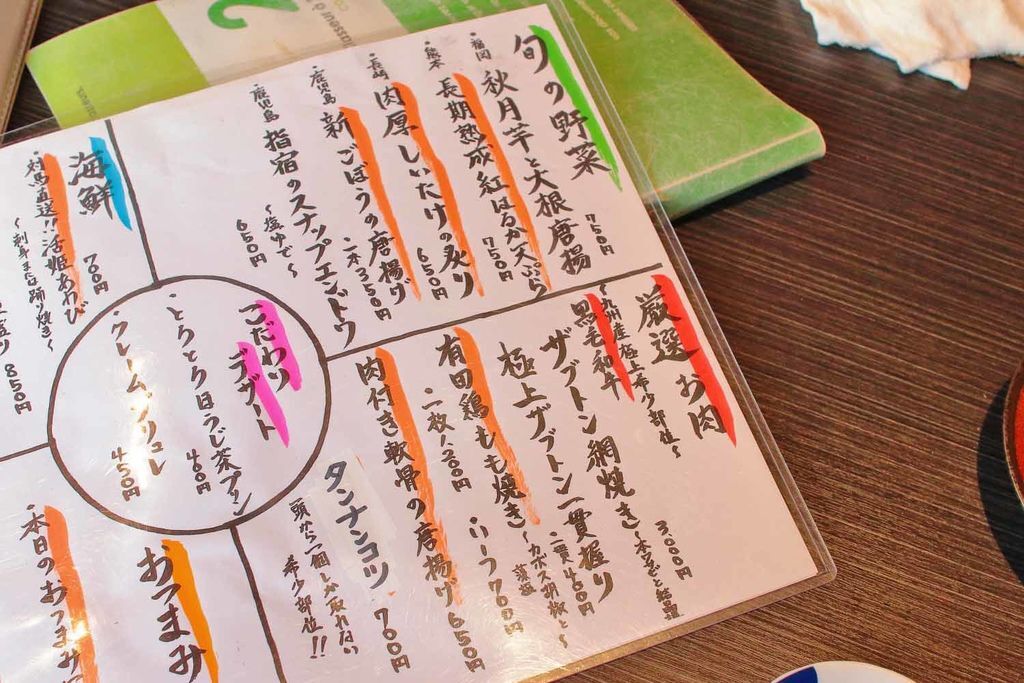 旬の野菜
・福岡 秋月芋と大根唐揚 750円
・熊本 長期熟成紅はるか天ぷら 750円
・長崎 肉厚しいたけの炙り 650円
・鹿児島 新ごぼうの唐揚げ 一本350円
・鹿児島 指宿のスナップエンドウ
〜塩ゆで〜 650円
海鮮
・対馬直送!!活姫あわび 700円
〜刺身または踊り焼き〜
850円
厳選お肉
〜九州産極上希少部位〜
黒毛和牛
ザブトン網焼き 3000円
極上ザブトン一貫握り
・一貫400円
有田鶏もも焼き〜カボス胡椒と〜
・一枚1,200円 ハーフ700円
肉付き軟骨の唐揚げ 650円
タンナンコツ 700円
頭から一個しか取れない
希少部位!!
こだわりデザート
・とろとろほうじ茶プリン 400円
・クレームブリュレ 450円
おつまみ
・本日のおつまみ
2